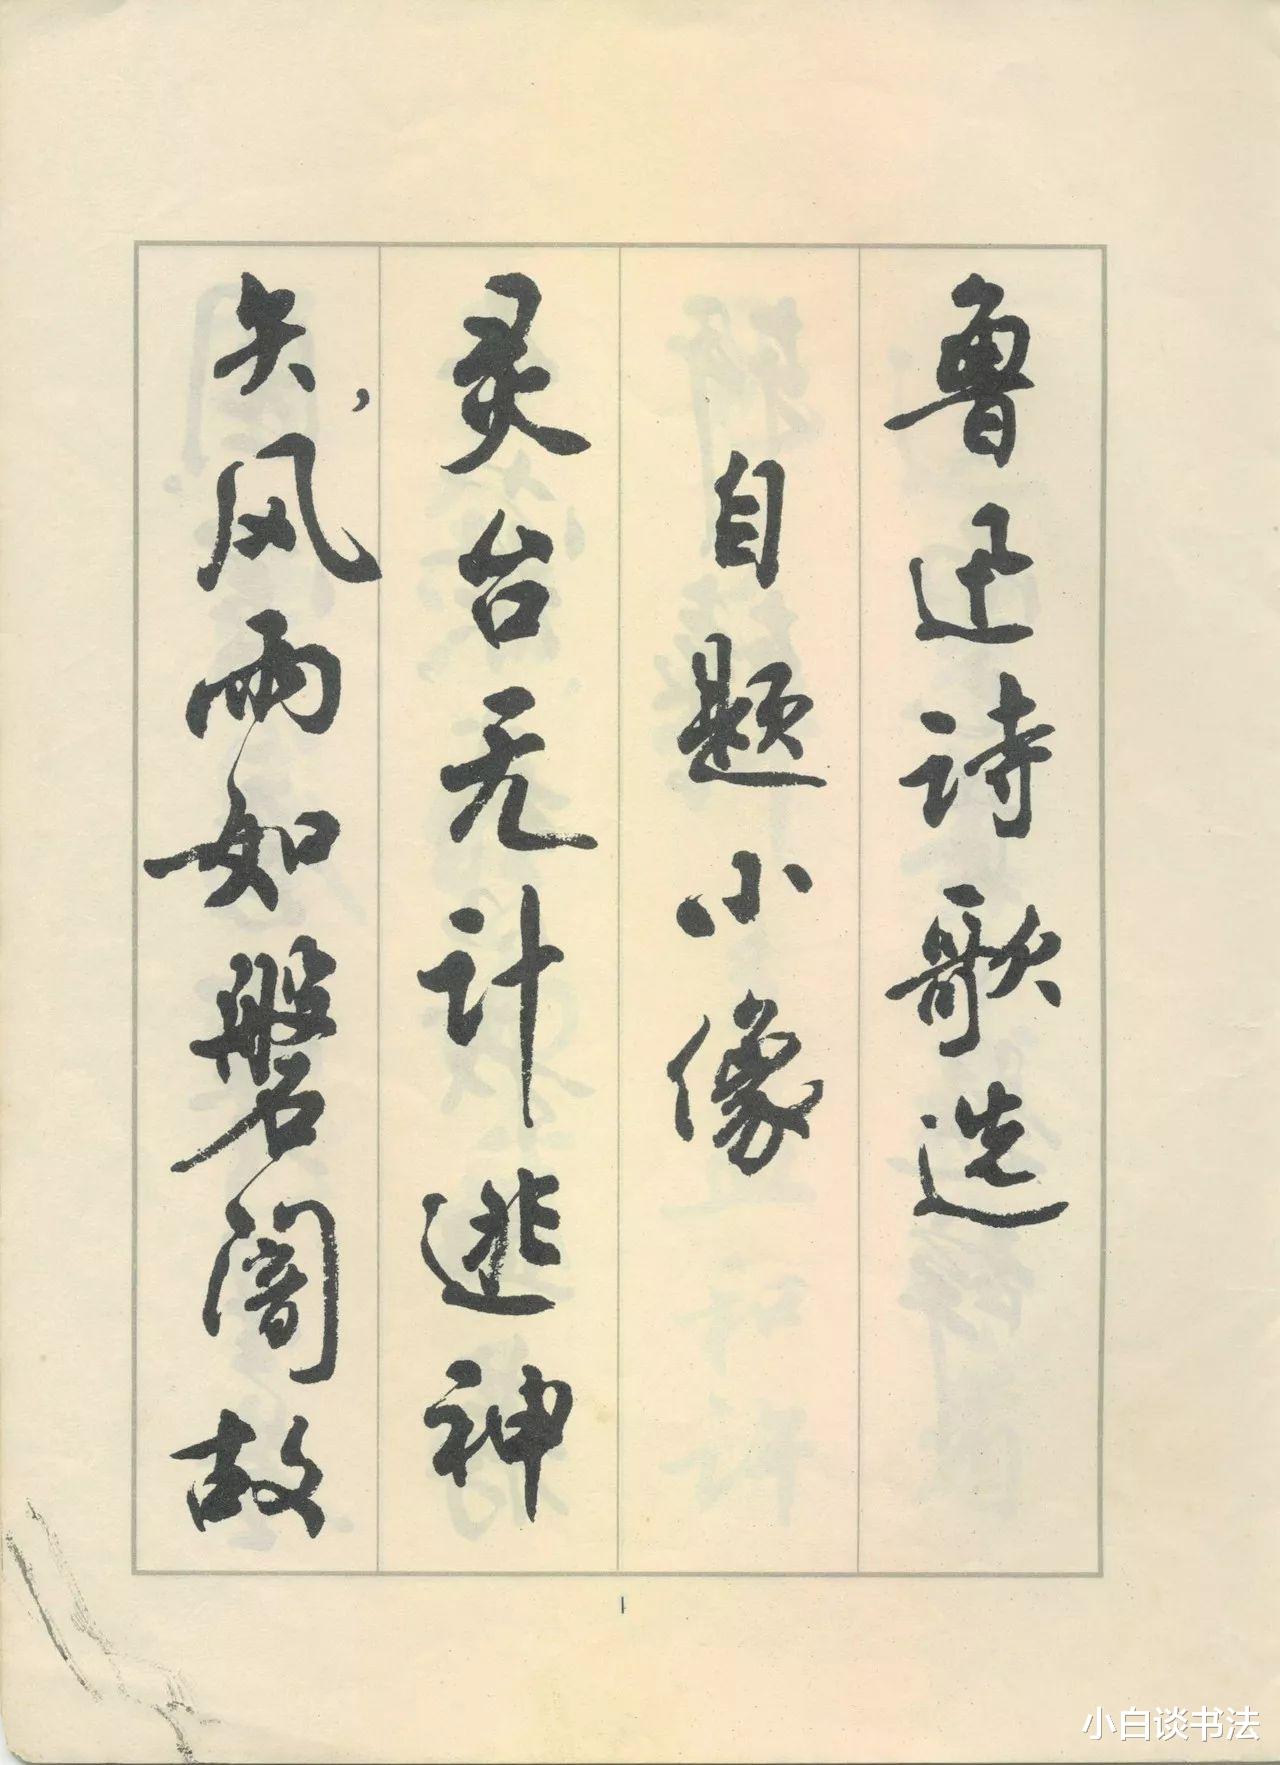 鲁迅诗歌选
自题小像
灵台无计逃神
矢，风雨如磐闇故
1
小白谈书法